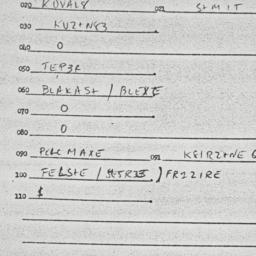 020 KOVALS 021 S+MIT
030 KUZ+NE3
040 0
050 TEP3R
060 BLAKAS+ / BLEXE
070 0
080 0
090 MAXE 091 K8IRZ+NE
100 FELS+E / ) FRIZIRE
110 $